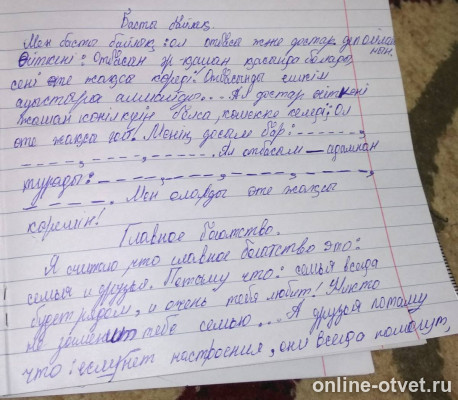 Басты байлық.
Мен басты байлық: ол отбасы және достар деп ойлаймын.
Өйткені: Отбасың әр қашан қасыңда болады,
сені өте жақсы көреді! Отбасыңды ешкім
ауыстыра алмайды... Ал достар өйткені
жаман көңіл күйің бола, көмекке келеді! Ол
өте жақсы ғой. Менің досым бар: - - - - - -,
- - - - - -, - - - - - -, - - - - - -. Ал отбасым — адамнан
тұрады: - - - - - -, - - - - - -, - - - - - -, - - - - - -,
- - -, - - - -. Мен оларды өте жақсы
көремін!
Главное богатство.
Я считаю что главное богатство это:
семья и друзья. Потому что: семья всегда
будет рядом, и очень тебя любит! Никто
не заменит тебе семью... А друзья потому
что: если нет настроения, они всегда помогут,
online-otvet.ru